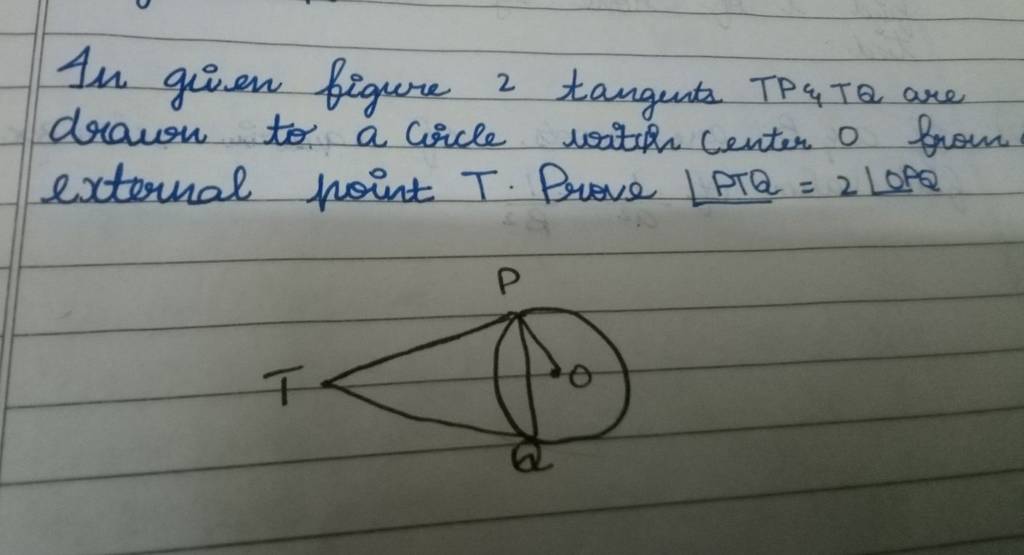 In given figure 2 tangents TP & TQ are
drawn to a circle with center O from
external point T. Prove ∠PTQ = 2∠OPQ
P
T
O
Q